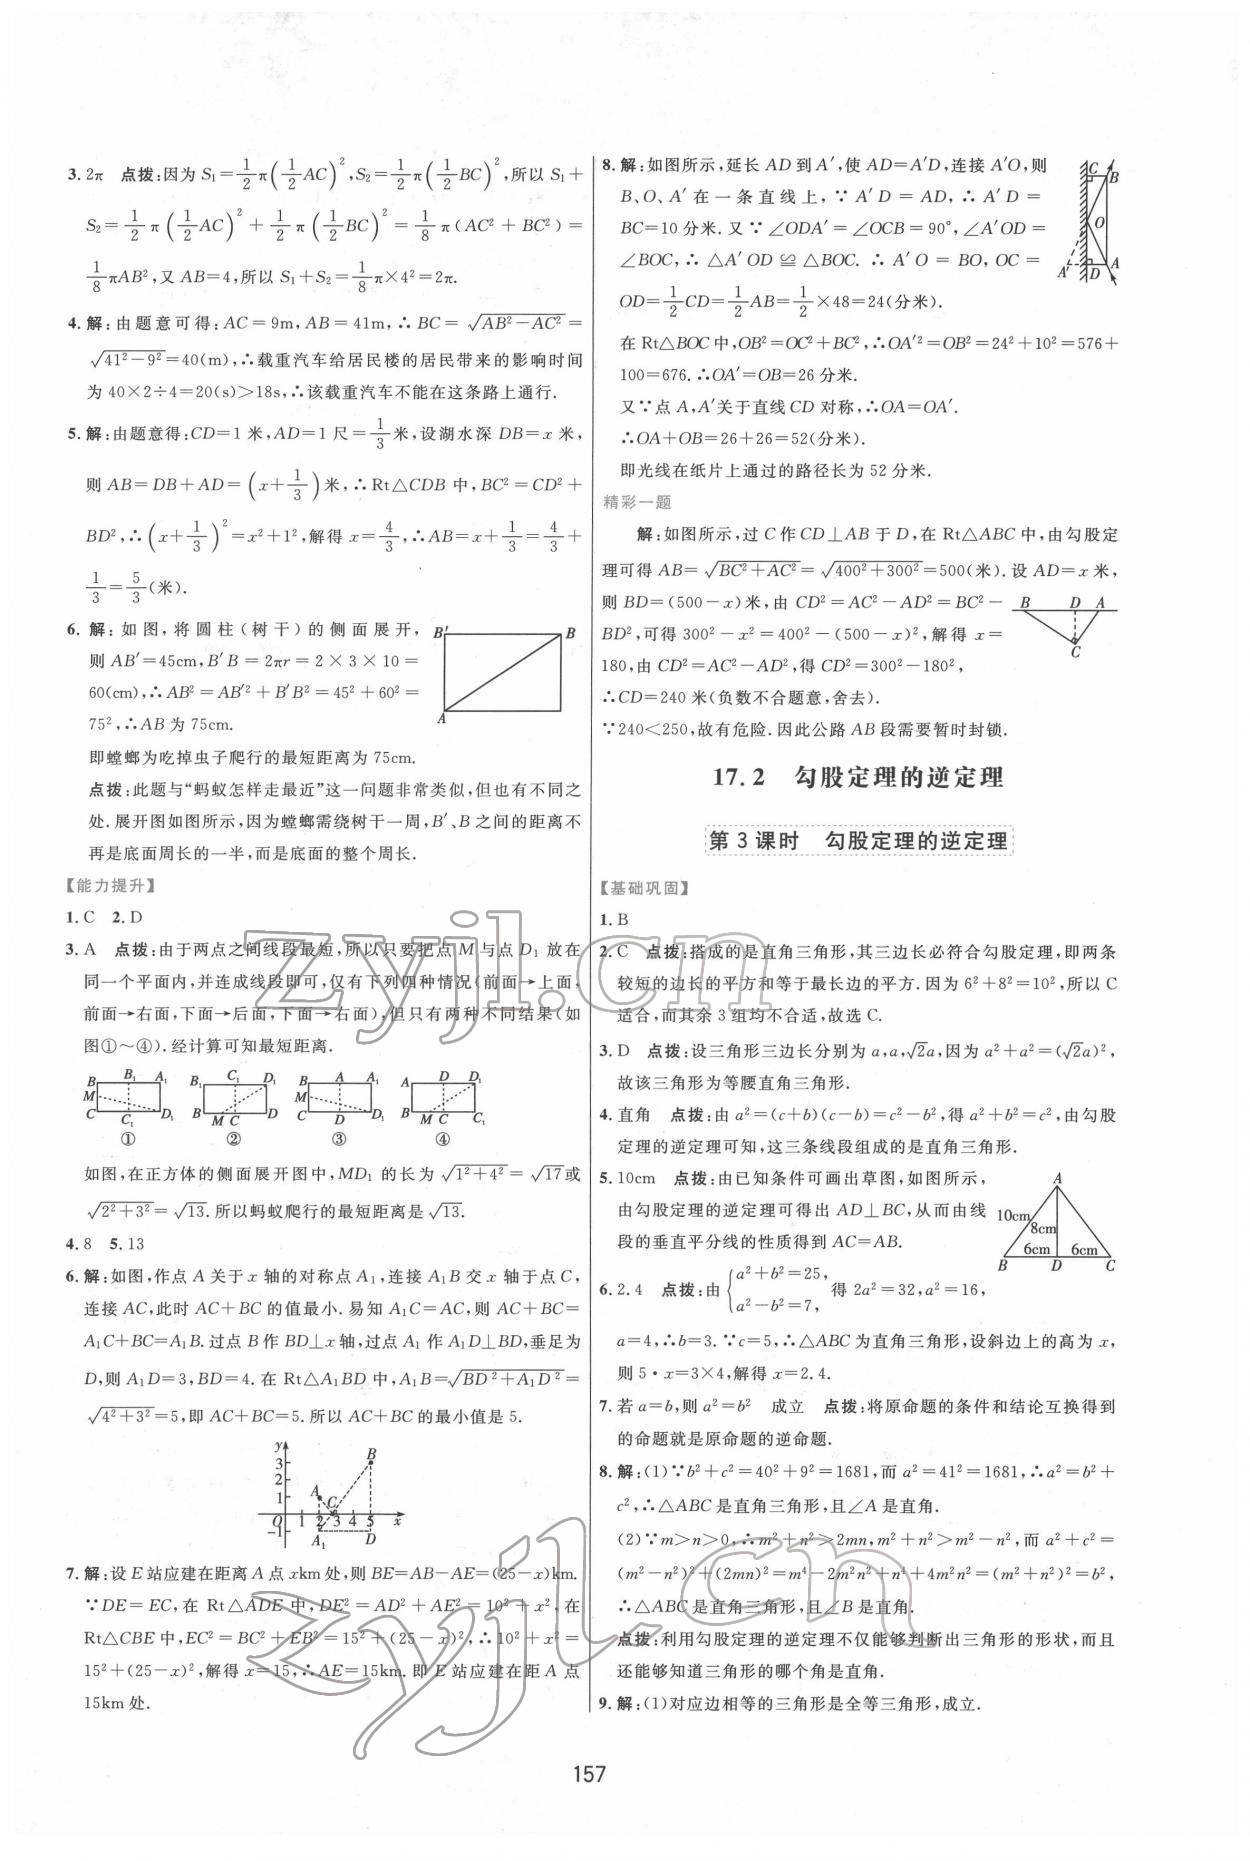 3. 2π 点拨:因为 S₁=1/2π(1/2AC)²,S₂=1/2π(1/2BC)²,所以 S₁+
S₂=1/2π(1/2AC)²+1/2π(1/2BC)²=1/8π(AC²+BC²)=
1/8πAB²,又 AB=4,所以 S₁+S₂=1/8π×4²=2π.
4. 解:由题意可得:AC=9m,AB=41m,∴BC=√(AB²-AC²)=
√(41²-9²)=40(m),∴载重汽车给居民楼的居民带来的影响时间
为 40×2÷4=20(s)>18s,∴该载重汽车不能在这条路上通行.
5. 解:由题意得:CD=1 米,AD=1 尺=1/3米,设湖水深 DB=x 米,
则 AB=DB+AD=(x+1/3)米,∴Rt△CDB 中,BC²=CD²+
BD²,∴(x+1/3)²=x²+1²,解得 x=4/3,∴AB=x+1/3=4/3+
1/3=5/3(米).
6. 解:如图,将圆柱(树干)的侧面展开,
则 AB′=45cm,B′B=2πr=2×3×10=
60(cm),∴AB²=AB′²+B′B²=45²+60²=
75²,∴AB 为 75cm.
B′ B
A
即螳螂为吃掉虫子爬行的最短距离为 75cm.
点拨:此题与“蚂蚁怎样走最近”这一问题非常类似,但也有不同之
处.展开图如图所示,因为螳螂需绕树干一周,B′、B 之间的距离不
再是底面周长的一半,而是底面的整个周长.
【能力提升】
1. C 2. D
3. A 点拨:由于两点之间线段最短,所以只要把点 M 与点 D₁ 放在
同一个平面内,并连成线段即可,仅有下列四种情况(前面→上面,
前面→右面,下面→后面,下面→右面),但只有两种不同结果(如
图①～④).经计算可知最短距离.
B B₁ A₁ B₁ C₁ D₁ B A A₁ A D D₁
M M
C C₁ D₁ B M C D C D D₁ B M C C₁
① ② ③ ④
如图,在正方体的侧面展开图中,MD₁ 的长为 √(1²+4²)=√17或
√(2²+3²)=√13.所以蚂蚁爬行的最短距离是 √13.
4. 8 5. 13
6. 解:如图,作点 A 关于 x 轴的对称点 A₁,连接 A₁B 交 x 轴于点 C,
连接 AC,此时 AC+BC 的值最小.易知 A₁C=AC,则 AC+BC=
A₁C+BC=A₁B.过点 B 作 BD⊥x 轴,过点 A₁ 作 A₁D⊥BD,垂足为
D,则 A₁D=3,BD=4.在 Rt△A₁BD 中,A₁B=√(BD²+A₁D²)=
√(4²+3²)=5,即 AC+BC=5.所以 AC+BC 的最小值是 5.
y
3 B
2
1 A C
O 1 2 3 4 5 x
-1 A₁ D
7. 解:设 E 站应建在距离 A 点 xkm 处,则 BE=AB-AE=(25-x)km.
∵DE=EC,在 Rt△ADE 中,DE²=AD²+AE²=10²+x²,在
Rt△CBE 中,EC²=BC²+EB²=15²+(25-x)²,∴10²+x²=
15²+(25-x)²,解得 x=15,∴AE=15km.即 E 站应建在距 A 点
15km 处.
8. 解:如图所示,延长 AD 到 A′,使 AD=A′D,连接 A′O,则
B、O、A′ 在一条直线上,∵A′D=AD,∴AD=
BC=10 分米.又∵∠ODA′=∠OCB=90°,∠A′OD=
∠BOC,∴△A′OD≌△BOC.∴A′O=BO,OC=
OD=1/2CD=1/2AB=1/2×48=24(分米).
C B
O
A′ D A
在 Rt△BOC 中,OB²=OC²+BC²,∴OA′²=OB²=24²+10²=576+
100=676.∴OA′=OB=26 分米.
又∵点 A,A′关于直线 CD 对称,∴OA=OA′.
∴OA+OB=26+26=52(分米).
即光线在纸片上通过的路径长为 52 分米.
精彩一题
解:如图所示,过 C 作 CD⊥AB 于 D,在 Rt△ABC 中,由勾股定
理可得 AB=√(BC²+AC²)=√(400²+300²)=500(米).设 AD=x 米,
则 BD=(500-x)米,由 CD²=AC²-AD²=BC²-
BD²,可得 300²-x²=400²-(500-x)²,解得 x=
180,由 CD²=AC²-AD²,得 CD²=300²-180²,
B D A
C
∴CD=240 米(负数不合题意,舍去).
∵240<250,故有危险.因此公路 AB 段需要暂时封锁.
17.2 勾股定理的逆定理
第 3 课时 勾股定理的逆定理
【基础巩固】
1. B
2. C 点拨:搭成的是直角三角形,其三边长必符合勾股定理,即两条
较短的边长的平方和等于最长边的平方.因为 6²+8²=10²,所以 C
适合,而其余 3 组均不合适,故选 C.
3. D 点拨:设三角形三边长分别为 a,a,√2a,因为 a²+a²=(√2a)²,
故该三角形为等腰直角三角形.
4. 直角 点拨:由 a²=(c+b)(c-b)=c²-b²,得 a²+b²=c²,由勾股
定理的逆定理可知,这三条线段组成的是直角三角形.
5. 10cm 点拨:由已知条件可画出草图,如图所示,
由勾股定理的逆定理可得出 AD⊥BC,从而由线
段的垂直平分线的性质得到 AC=AB.
A
10cm 8cm
6cm 6cm
B D C
6. 2.4 点拨:由{a²+b²=25, a²-b²=7, 得 2a²=32,a²=16,
a=4,∴b=3.∵c=5,∴△ABC 为直角三角形,设斜边上的高为 x,
则 5·x=3×4,解得 x=2.4.
7. 若 a=b,则 a²=b² 成立 点拨:将原命题的条件和结论互换得到
的命题就是原命题的逆命题.
8. 解:(1)∵b²+c²=40²+9²=1681,而 a²=41²=1681,∴a²=b²+
c²,∴△ABC 是直角三角形,且∠A 是直角.
(2)∵m>n>0,∴m²+n²>2mn,m²+n²>m²-n²,而 a²+c²=
(m²-n²)²+(2mn)²=m⁴-2m²n²+n⁴+4m²n²=(m²+n²)²=b²,
∴△ABC 是直角三角形,且∠B 是直角.
点拨:利用勾股定理的逆定理不仅能够判断出三角形的形状,而且
还能够知道三角形的哪个角是直角.
9. 解:(1)对应边相等的三角形是全等三角形,成立.
157
zyjl.cn
zyjl.cn